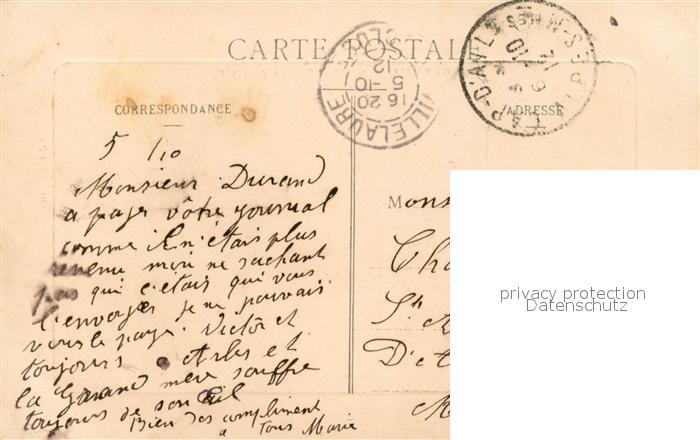 CARTE POSTALE
VILLELAURE
16 20
5-10
12
CORRESPONDANCE
ADRESSE
5/10
Monsieur Durand
a payer vôtre journal
comme il n'étais plus
revenu moi ne sachant
pas qui c'étais qui vous
l'envoyer je ne pouvais
vous le payé. Victor et
toujours a Arles et
la Grand mere souffre
toujours de son œil
Bien des compliment
a tous Marie
Mons
Cha
St
D'A
privacy protection
Datenschutz